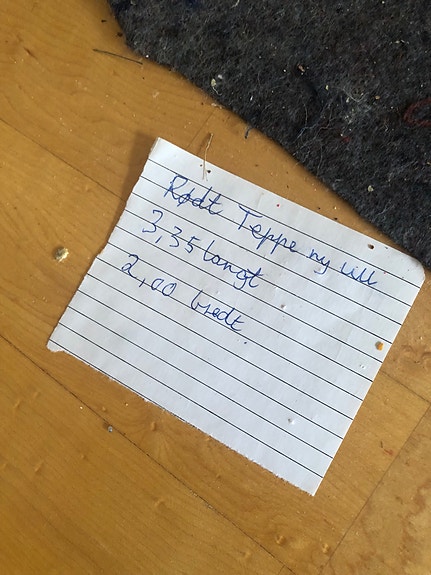 Rødt Teppe ny ull
3,35 langt
2,00 bredt.